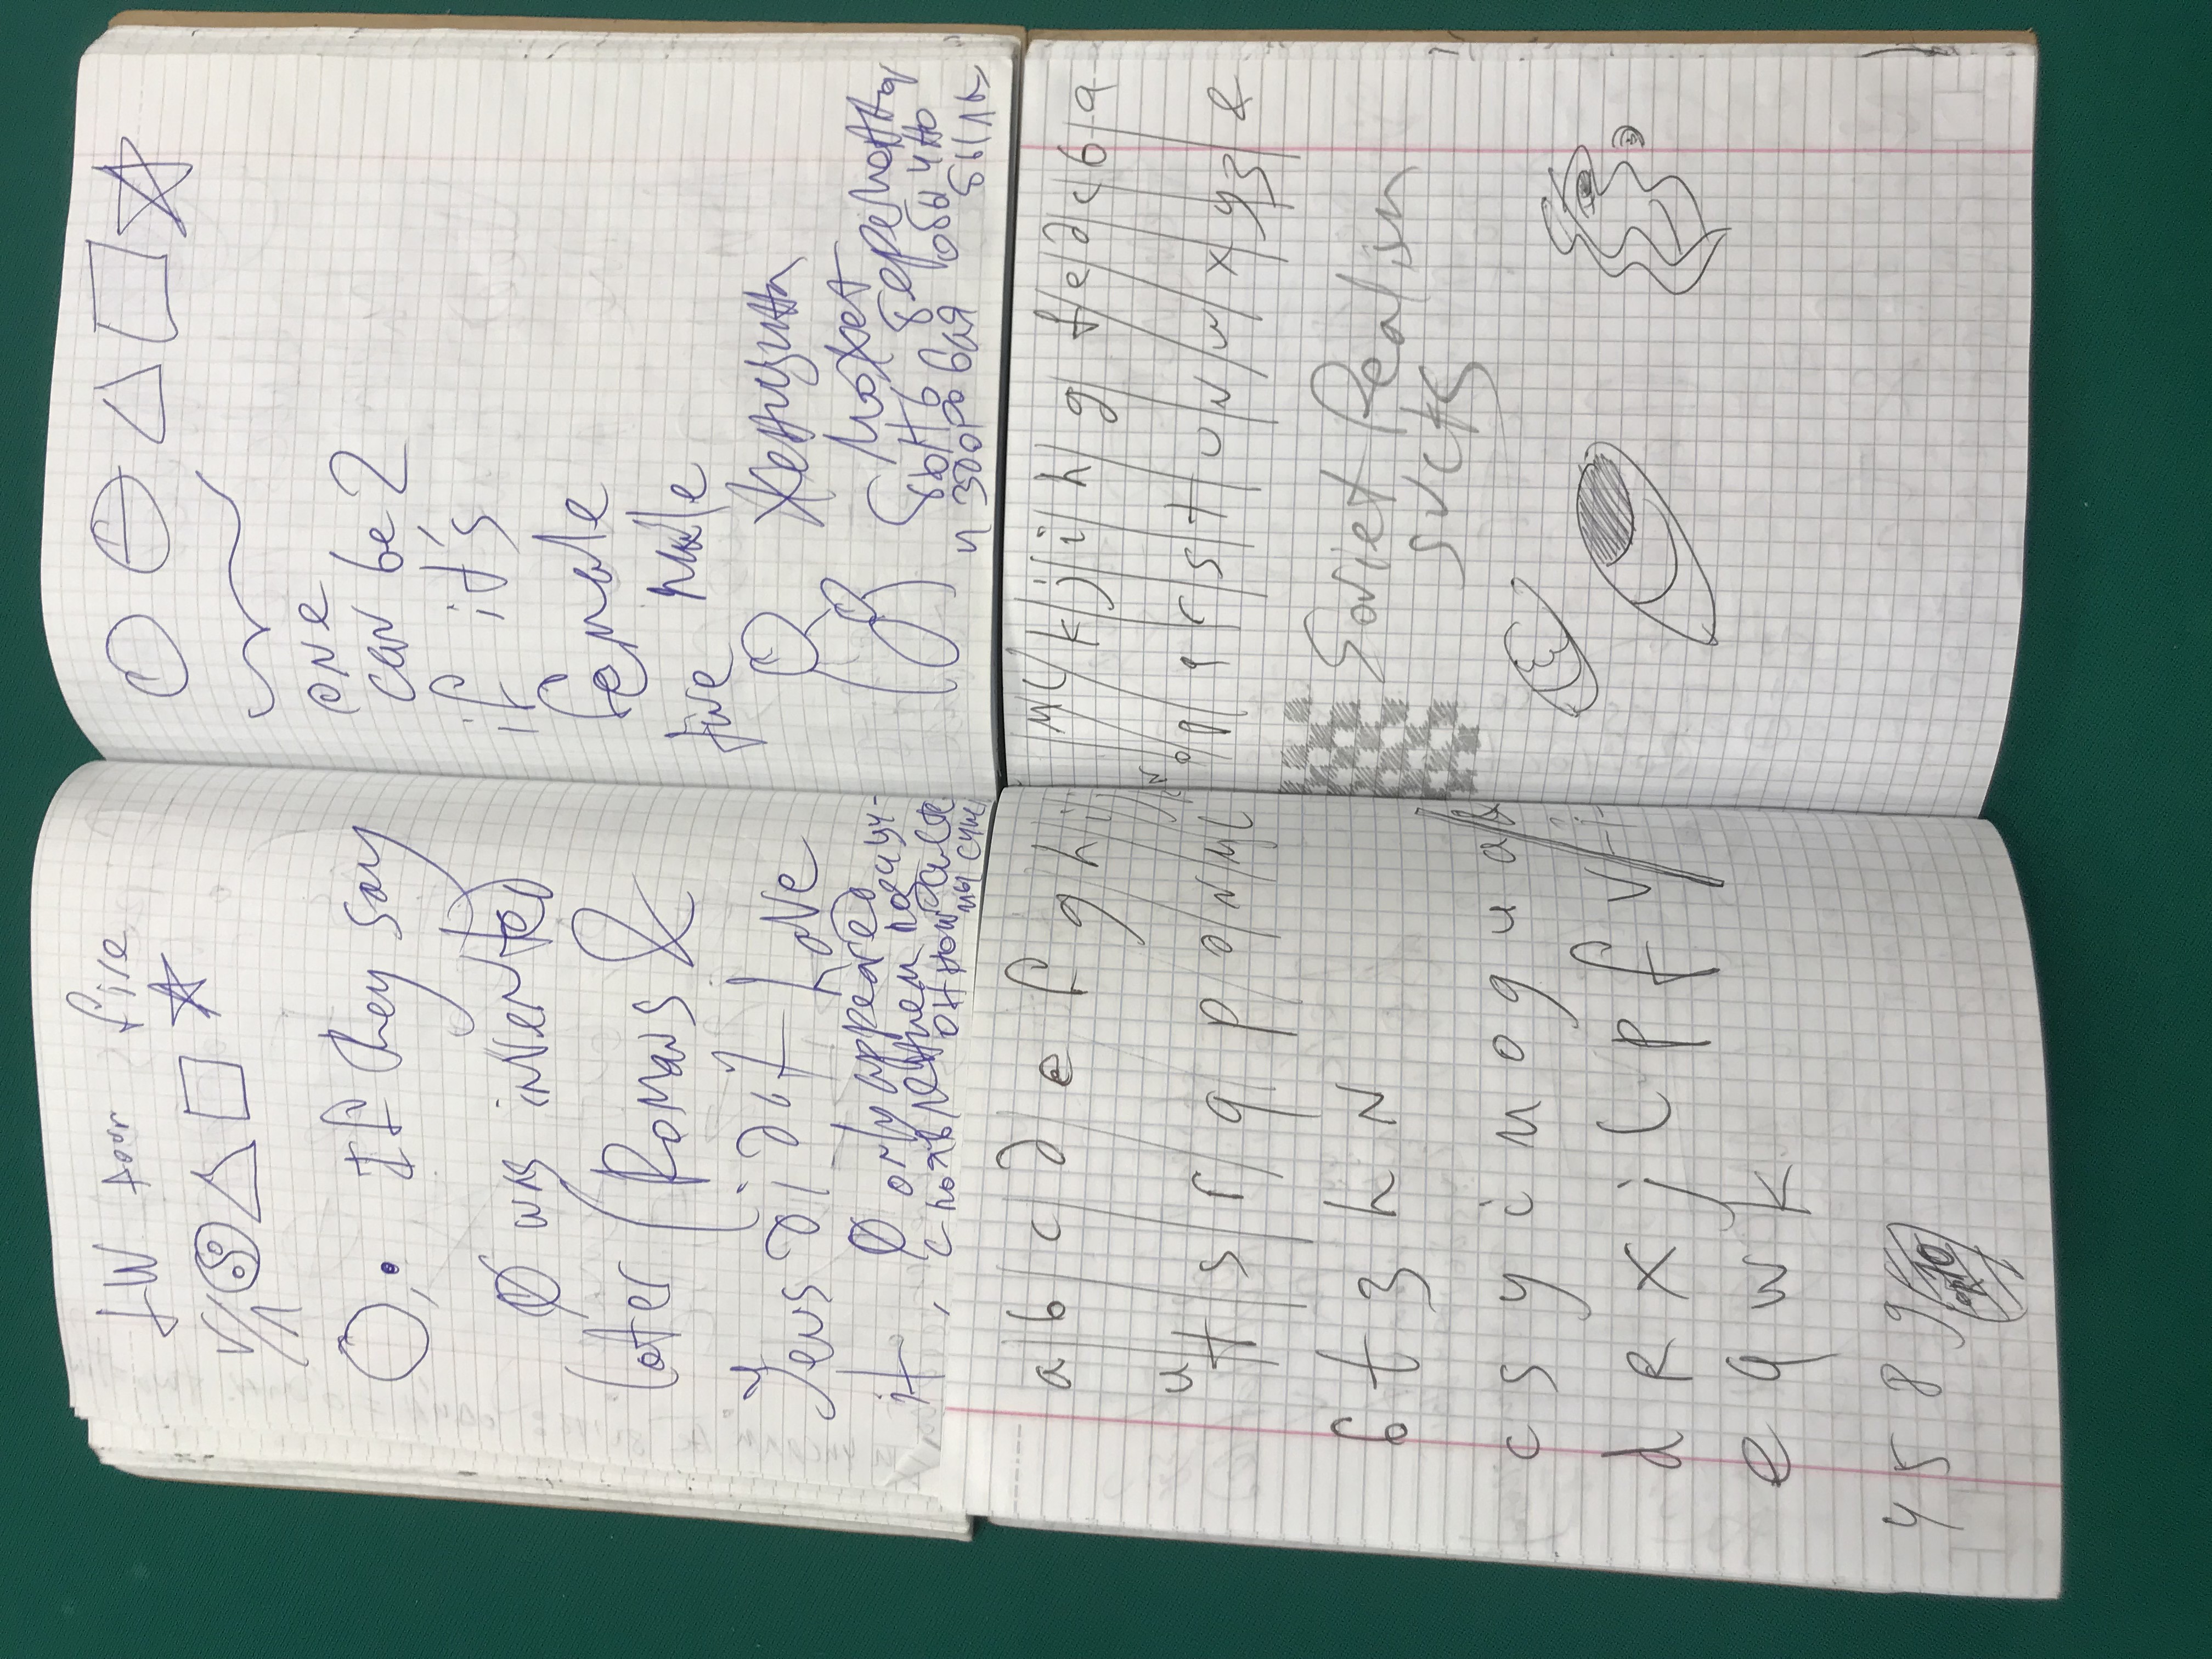 five
If they say
Ø was invented
later (Romans &
did not have
it, Ø only appeared
с появлением позици-
one
can be 2
if it's
female
male
Женщина
может
быть беременна
и здоровая обычно
a b c d e f g h i j
u t s r q p o n m l
6 t 3 h N
c s y i m o g u a &
d R x j l p f v
e q w k
4 5 8 9 10
m l k j i h g f e d c b a
o p q r s t u v w x y z &
Soviet Realism
sucks